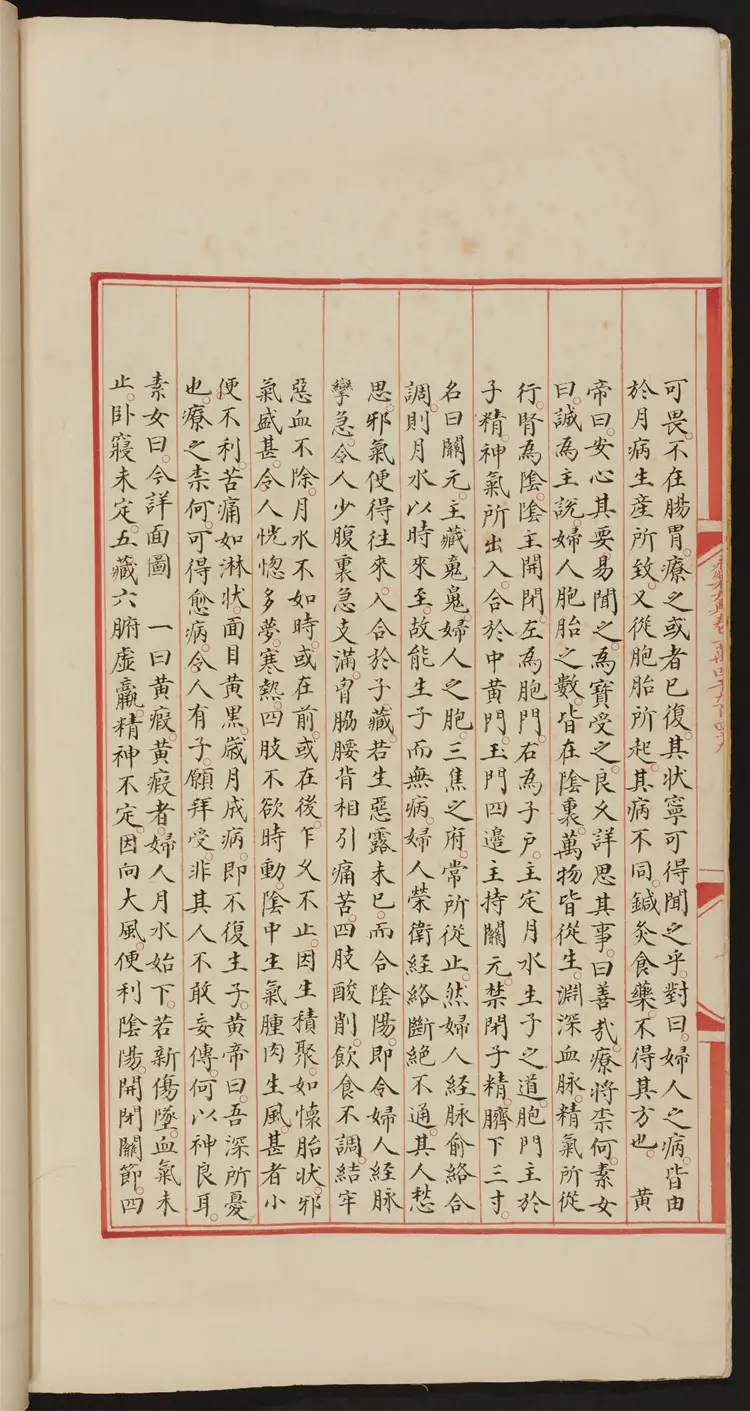 可畏。不在腸胃。療之或者已復。其狀寧可得聞之乎。對曰。婦人之病。皆由
於月病生産所致。又從胞胎所起。其病不同。鍼灸食藥。不得其方也。　黄
帝曰。安心其要易聞之。為寶受之。良久詳思其事。曰善哉。療將柰何。素女
曰。誠為主說。婦人胞胎之數。皆在陰裏。萬物皆從生。淵深血脉。精氣所從
行。腎為陰。陰主開閉。左為胞門。右為子户。主定月水生子之道。胞門主於
子精。神氣所出入。合於中黄門。玉門四邉主持關元。禁閉子精。臍下三寸。
名曰關元。主藏䰟䰟。婦人之胞。三焦之府。常所從止。然婦人經脉俞絡合
調。則月水以時來至。故能生子而無病。婦人榮衛經絡斷絕不通。其人愁
思。邪氣便得往來。入合於子藏。若生惡露未已。而合陰陽。即令婦人經脉
攣急。令人少腹裏急支滿。胷脇腰背相引痛苦。四肢酸削。飲食不調。結牢
惡血不除。月水不如時。或在前。或在後。乍久不止。因生積聚。如懷胎狀。邪
氣盛甚。令人恍惚多夢。寒熱。四肢不欲時動。陰中生氣腫肉生風。甚者小
便不利。苦痛如淋狀。面目黄黑。歲月成病。即不復生子。黄帝曰。吾深所憂
也。療之柰何。可得愈病。令人有子。願拜受。非其人不敢妄傳。何以神良耳。
素女曰。今詳面圖　一曰黄瘕。黄瘕者。婦人月水始下。若新傷墜。血氣未
止。卧寢未定。五藏六腑虚羸。精神不定。因向大風。便利陰陽。開閉關節。四